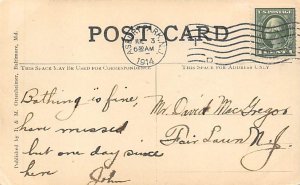 POST CARD
3
6 30 AM
1914
THIS SPACE MAY BE USED FOR CORRESPONDENCE
THIS SPACE FOR ADDRESS ONLY
Bathing is fine,
have missed
but one day since
here
John
Mr. David MacGregor
Fair Lawn N.J.
Published by
Baltimore, Md.